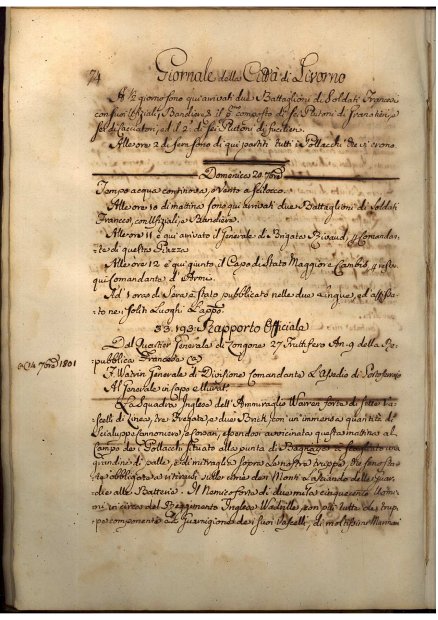 74 Giornale della Città di Livorno
A ½ giorno sono qui arrivati due Battaglioni di Soldati Francesi
con suoi Uffiziali, e Bandiera, il p.º composto di sei Plutoni di Granatieri, e
sei di Cacciatori, ed il 2. di sei Plutoni di fucilieri.
Alle ore 2 di sera sono di qui partiti tutti i Pollacchi che vi erono.
Domenica 20 7bre
Tempo acqua continova, e Vento a scilocco.
Alle ore 10 di mattina sono qui arrivati due Battaglioni di Soldati
Francesi, con Uffiziali, e Bandiera.
Alle ore 11 è qui arrivato il Generale di Brigata Rivaud, p Comandan-
te di questa Piazza
Alle ore 12 è qui giunto il Capo di Stato Maggiore, p resta
qui Comandante d'Armi.
Ad 1 ora di Sera è stato pubblicato nelle due Lingue, ed affissa-
to nei soliti Luoghi L'app.
53. 193. Rapporto Officiale
Dal Quartier Generale di Longone 27 Fruttifero An. 9 della Re-
pubblica Francese
14 7bre 1801
Generale di Divisione Comandante L'Assedio di Portoferrajo
Al Generale in Capo Murat.
La Squadra Inglese dell'Ammiraglio Warren forte di sette Va-
scelli di Linea, tre Fregate, e due Brick, con un'immensa quantità di
Scialuppe Cannoniere, essendosi avvicinata questa mattina al
Campo dei Pollacchi situato alla punta di
quindici di palle, e di mitraglia sopra la nostra truppa, che sono sta-
te obbligate a ritirarsi sulle cime dei Monti Lasciando delle Guar-
die alle Batterie. Il Nemico forte di due mila cinquecento Uomi-
ni in circa del Reggimento Inglese, con più tutta la trup-
pe componente a di Guarnigione dei suoi Vascelli, di moltissimi Marinari